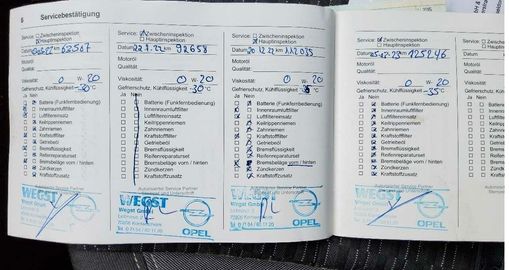 6 Servicebestätigung
Service: Zwischeninspektion
Hauptinspektion
Datum 62507
Motoröl
Qualität:
Viskosität: 0 W- 20
Gefrierschutz, Kühlflüssigkeit -30°C
Ja Nein
Batterie (Funkfernbedienung)
Innenraumluftfilter
Luftfiltereinsatz
Keilrippenriemen
Zahnriemen
Kraftstofffilter
Getriebeöl
Bremsflüssigkeit
Reifenreparaturset
Bremsbeläge vorn / hinten
Zündkerzen
Kraftstoffzusatz
Autorisierter Service Partner
WEGST
Wegst GmbH
OPEL
Service: Zwischeninspektion
Hauptinspektion
Datum 92658
Motoröl
Qualität:
Viskosität: 0 W- 20
Gefrierschutz, Kühlflüssigkeit -30°C
Ja Nein
Batterie (Funkfernbedienung)
Innenraumluftfilter
Luftfiltereinsatz
Keilrippenriemen
Zahnriemen
Kraftstofffilter
Getriebeöl
Bremsflüssigkeit
Reifenreparaturset
Bremsbeläge vorn / hinten
Zündkerzen
Kraftstoffzusatz
Autorisierter Service Partner
WEGST
Wegst GmbH
OPEL
Service: Zwischeninspektion
Hauptinspektion
Datum 20.12.22 112035
Motoröl
Qualität:
Viskosität: 0 W- 20
Gefrierschutz, Kühlflüssigkeit °C
Ja Nein
Batterie (Funkfernbedienung)
Innenraumluftfilter
Luftfiltereinsatz
Keilrippenriemen
Zahnriemen
Kraftstofffilter
Getriebeöl
Bremsflüssigkeit
Reifenreparaturset
Bremsbeläge vorn / hinten
Zündkerzen
Kraftstoffzusatz
Autorisierter Service Partner
WEGST
Wegst GmbH
OPEL
Service: Zwischeninspektion
Hauptinspektion
Datum 125246
Motoröl
Qualität:
Viskosität: 0 W- 20
Gefrierschutz, Kühlflüssigkeit -35°C
Ja Nein
Batterie (Funkfernbedienung)
Innenraumluftfilter
Luftfiltereinsatz
Keilrippenriemen
Zahnriemen
Kraftstofffilter
Getriebeöl
Bremsflüssigkeit
Reifenreparaturset
Bremsbeläge vorn / hinten
Zündkerzen
Kraftstoffzusatz
Autorisierter Service Partner
WEGST
Wegst GmbH
OPEL
Service:
Datum
Motoröl
Qualität:
Viskosität:
Gefriersch
Ja Nein